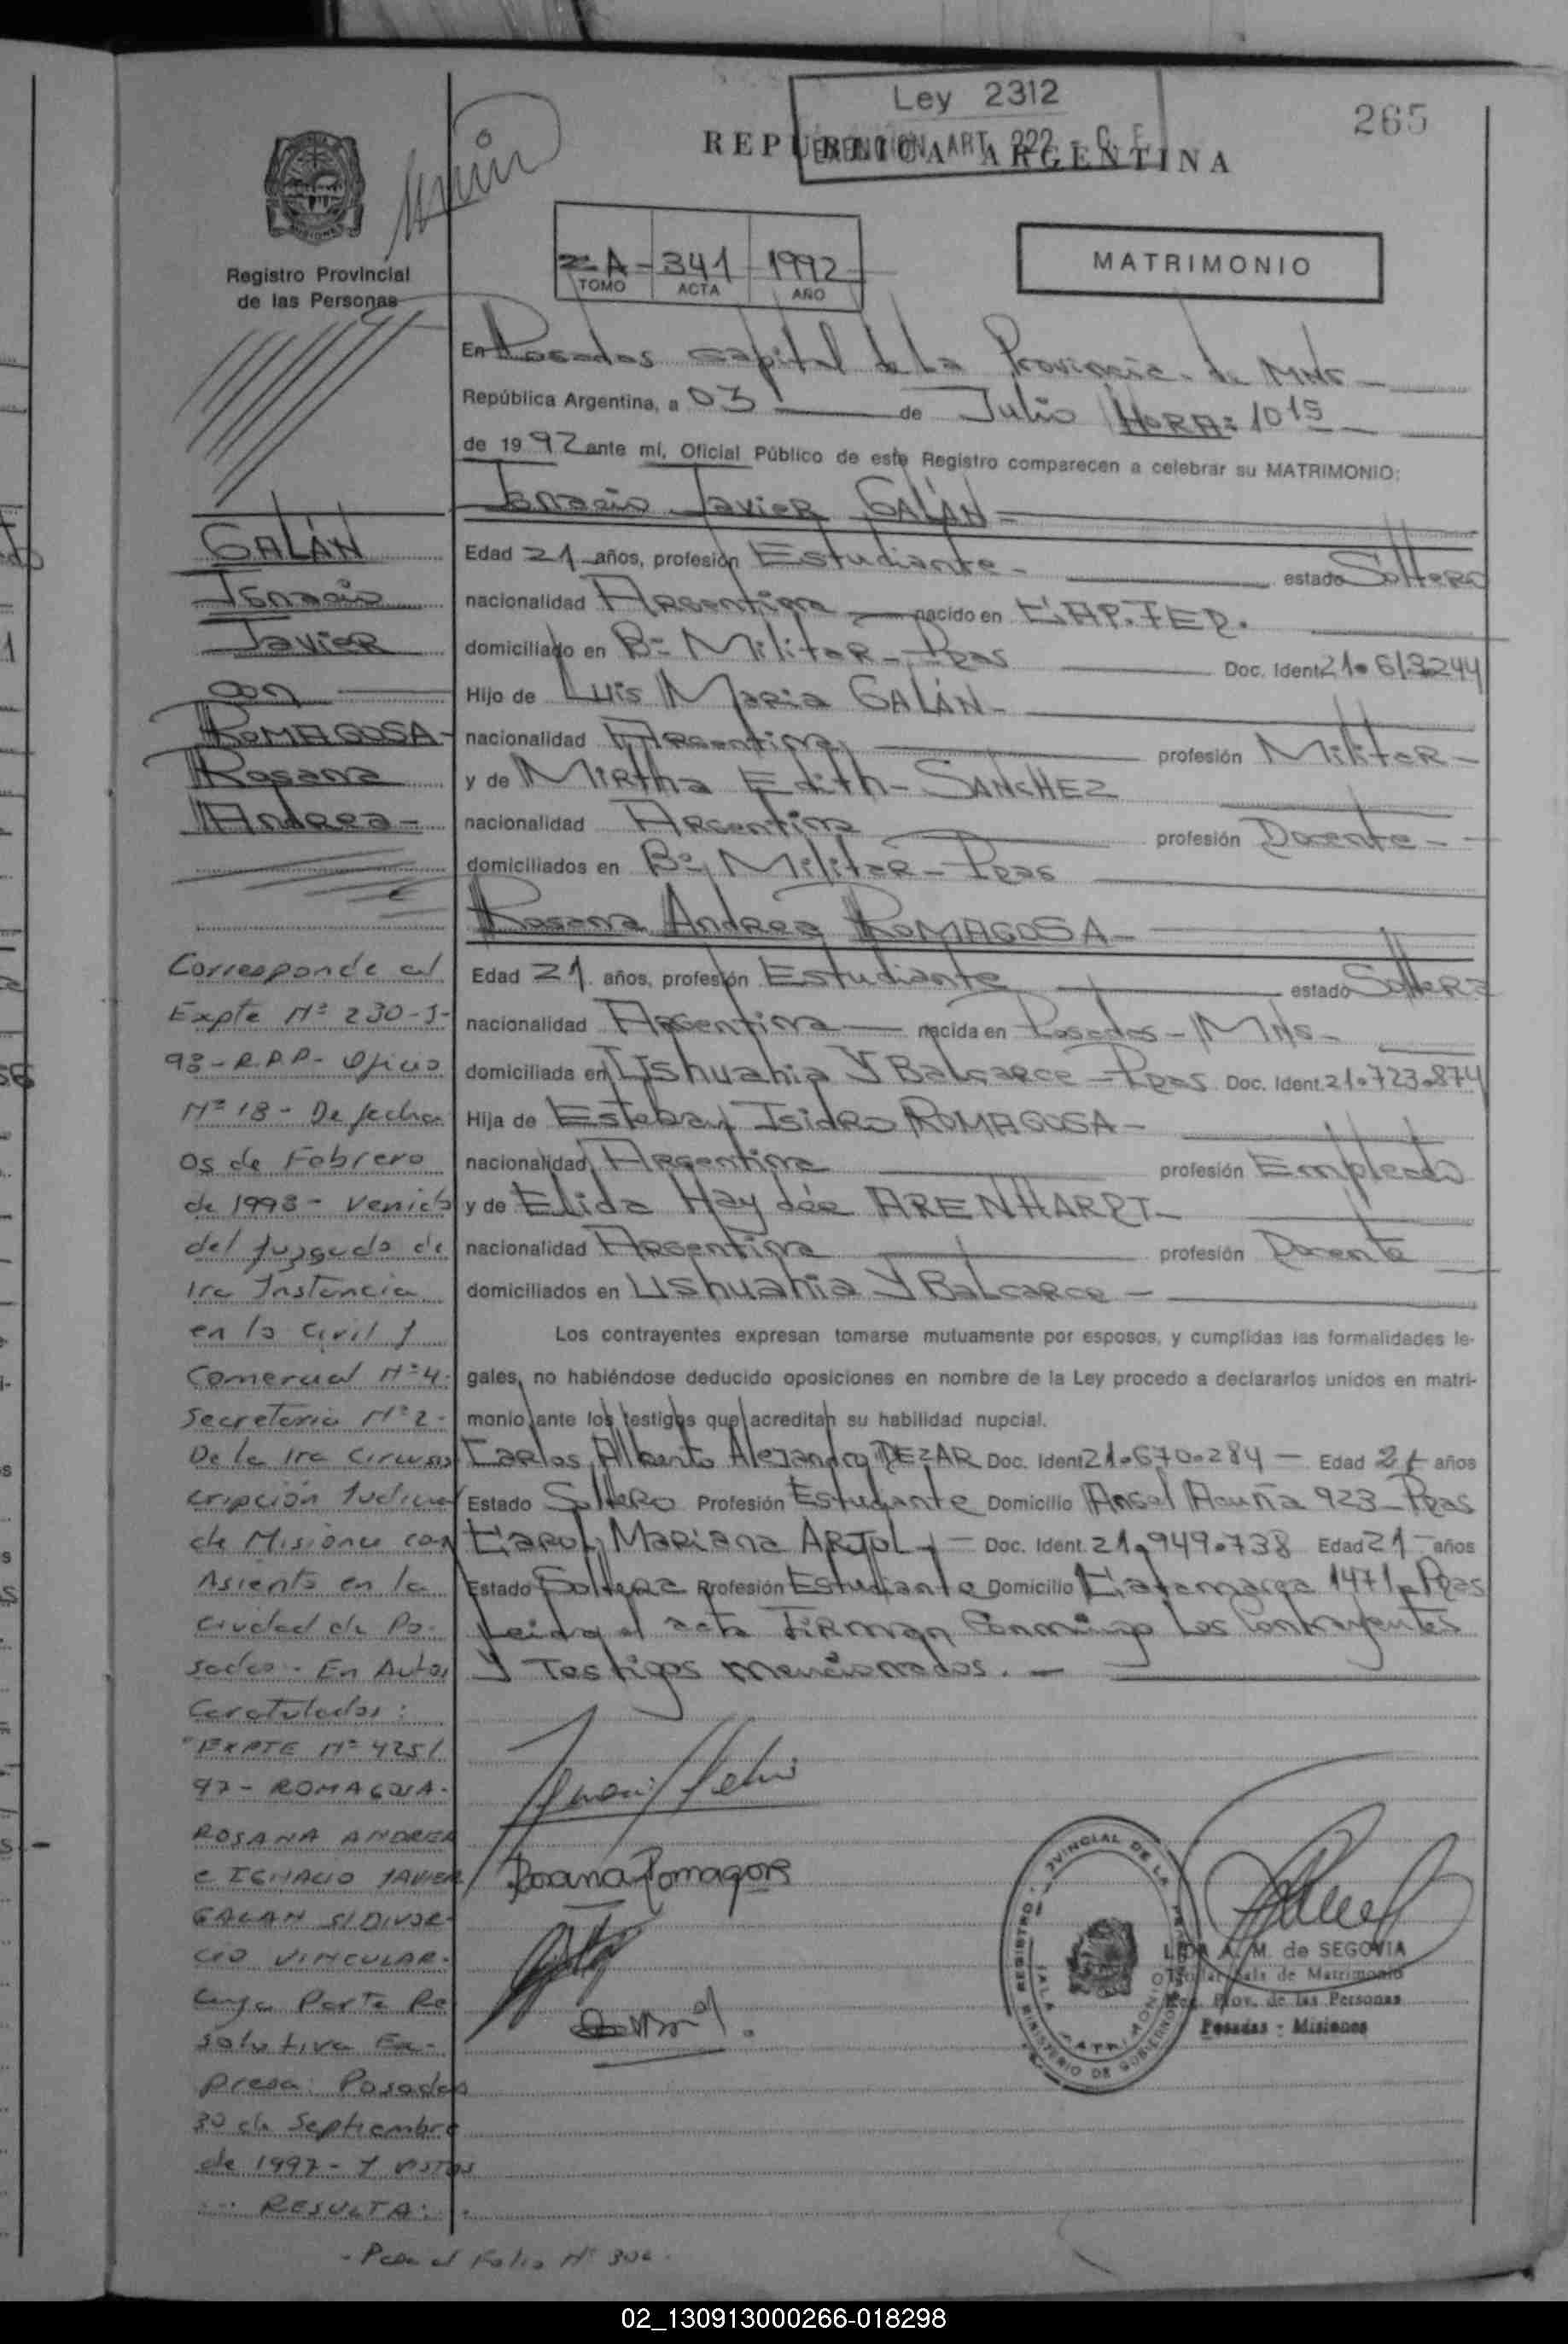 Ley 2312
EXENCION ART. 222 - C. F.
265
REPUBLICA ARGENTINA
Registro Provincial
de las Personas
2-A - 341 - 1992
TOMO ACTA AÑO
MATRIMONIO
En Posadas Capital de la Provincia de Mnes
República Argentina, a 03 de Julio HORA: 10 15
de 1992 ante mí, Oficial Público de este Registro comparecen a celebrar su MATRIMONIO:
Ignacio Javier GALÁN
Edad 21 años, profesión Estudiante estado Soltero
nacionalidad Argentina nacido en CAP. FED.
domiciliado en Bº Militar - Pdas Doc. Ident. 21.613.244
Hijo de Luis Maria GALÁN
nacionalidad Argentina profesión Militar
y de Mirtha Edith SANCHEZ
nacionalidad Argentina profesión Docente
domiciliados en Bº Militar - Pdas
Rosana Andrea ROMAGOSA
Edad 21 años, profesión Estudiante estado Soltera
nacionalidad Argentina nacida en Posadas - Mnes
domiciliada en Ushuahia Y Balcarce - Pdas Doc. Ident. 21.723.874
Hija de Esteban Isidro ROMAGOSA
nacionalidad Argentina profesión Empleado
y de Elida Haydée ARENHARDT
nacionalidad Argentina profesión Docente
domiciliados en Ushuahia Y Balcarce
Los contrayentes expresan tomarse mutuamente por esposos, y cumplidas las formalidades le-
gales, no habiéndose deducido oposiciones en nombre de la Ley procedo a declararlos unidos en matri-
monio ante los testigos que acreditan su habilidad nupcial.
Carlos Alberto Alejandro DEZAR Doc. Ident. 21.670.284 Edad 21 años
Estado Soltero Profesión Estudiante Domicilio Angel Acuña 923 - Pdas
Carol Mariana Doc. Ident. 21.949.738 Edad 21 años
Estado Soltera Profesión Estudiante Domicilio Catamarca 1471 - Pdas
Leida el acta Firman Conmigo Los Contrayentes
Y Testigos mencionados.
GALÁN
Ignacio
Javier
con
ROMAGOSA
Rosana
Andrea
Corresponde al
Expte Nº 230-J-
93-R.P.P- Oficio
Nº 18 - De fecha
05 de Febrero
de 1998 - Venido
del Juzgado de
1ra Instancia
en lo Civil y
Comercial Nº 4-
Secretaria Nº 2-
De la 1ra Circuns
cripción Judicial
de Misiones con
Asiento en la
Ciudad de Po-
sadas - En Autos
Caratulados:
"EXPTE Nº 425/
97 - ROMAGOSA
ROSANA ANDREA
e IGNACIO JAVIER
GALAN S/DIVOR-
CIO VINCULAR-
Cuya Parte Re
solutiva Ex-
presa: Posadas
30 de Septiembre
de 1997 - Y VISTOS
... RESULTA:
- Pasa al Folio Nº 306 -
Rosana Romagosa
REGISTRO PROVINCIAL DE LA
MINISTERIO DE GOBIERNO
A. M. de SEGOVIA
Titular Sala de Matrimonio
Reg. Prov. de las Personas
Posadas - Misiones
02_130913000266-018298